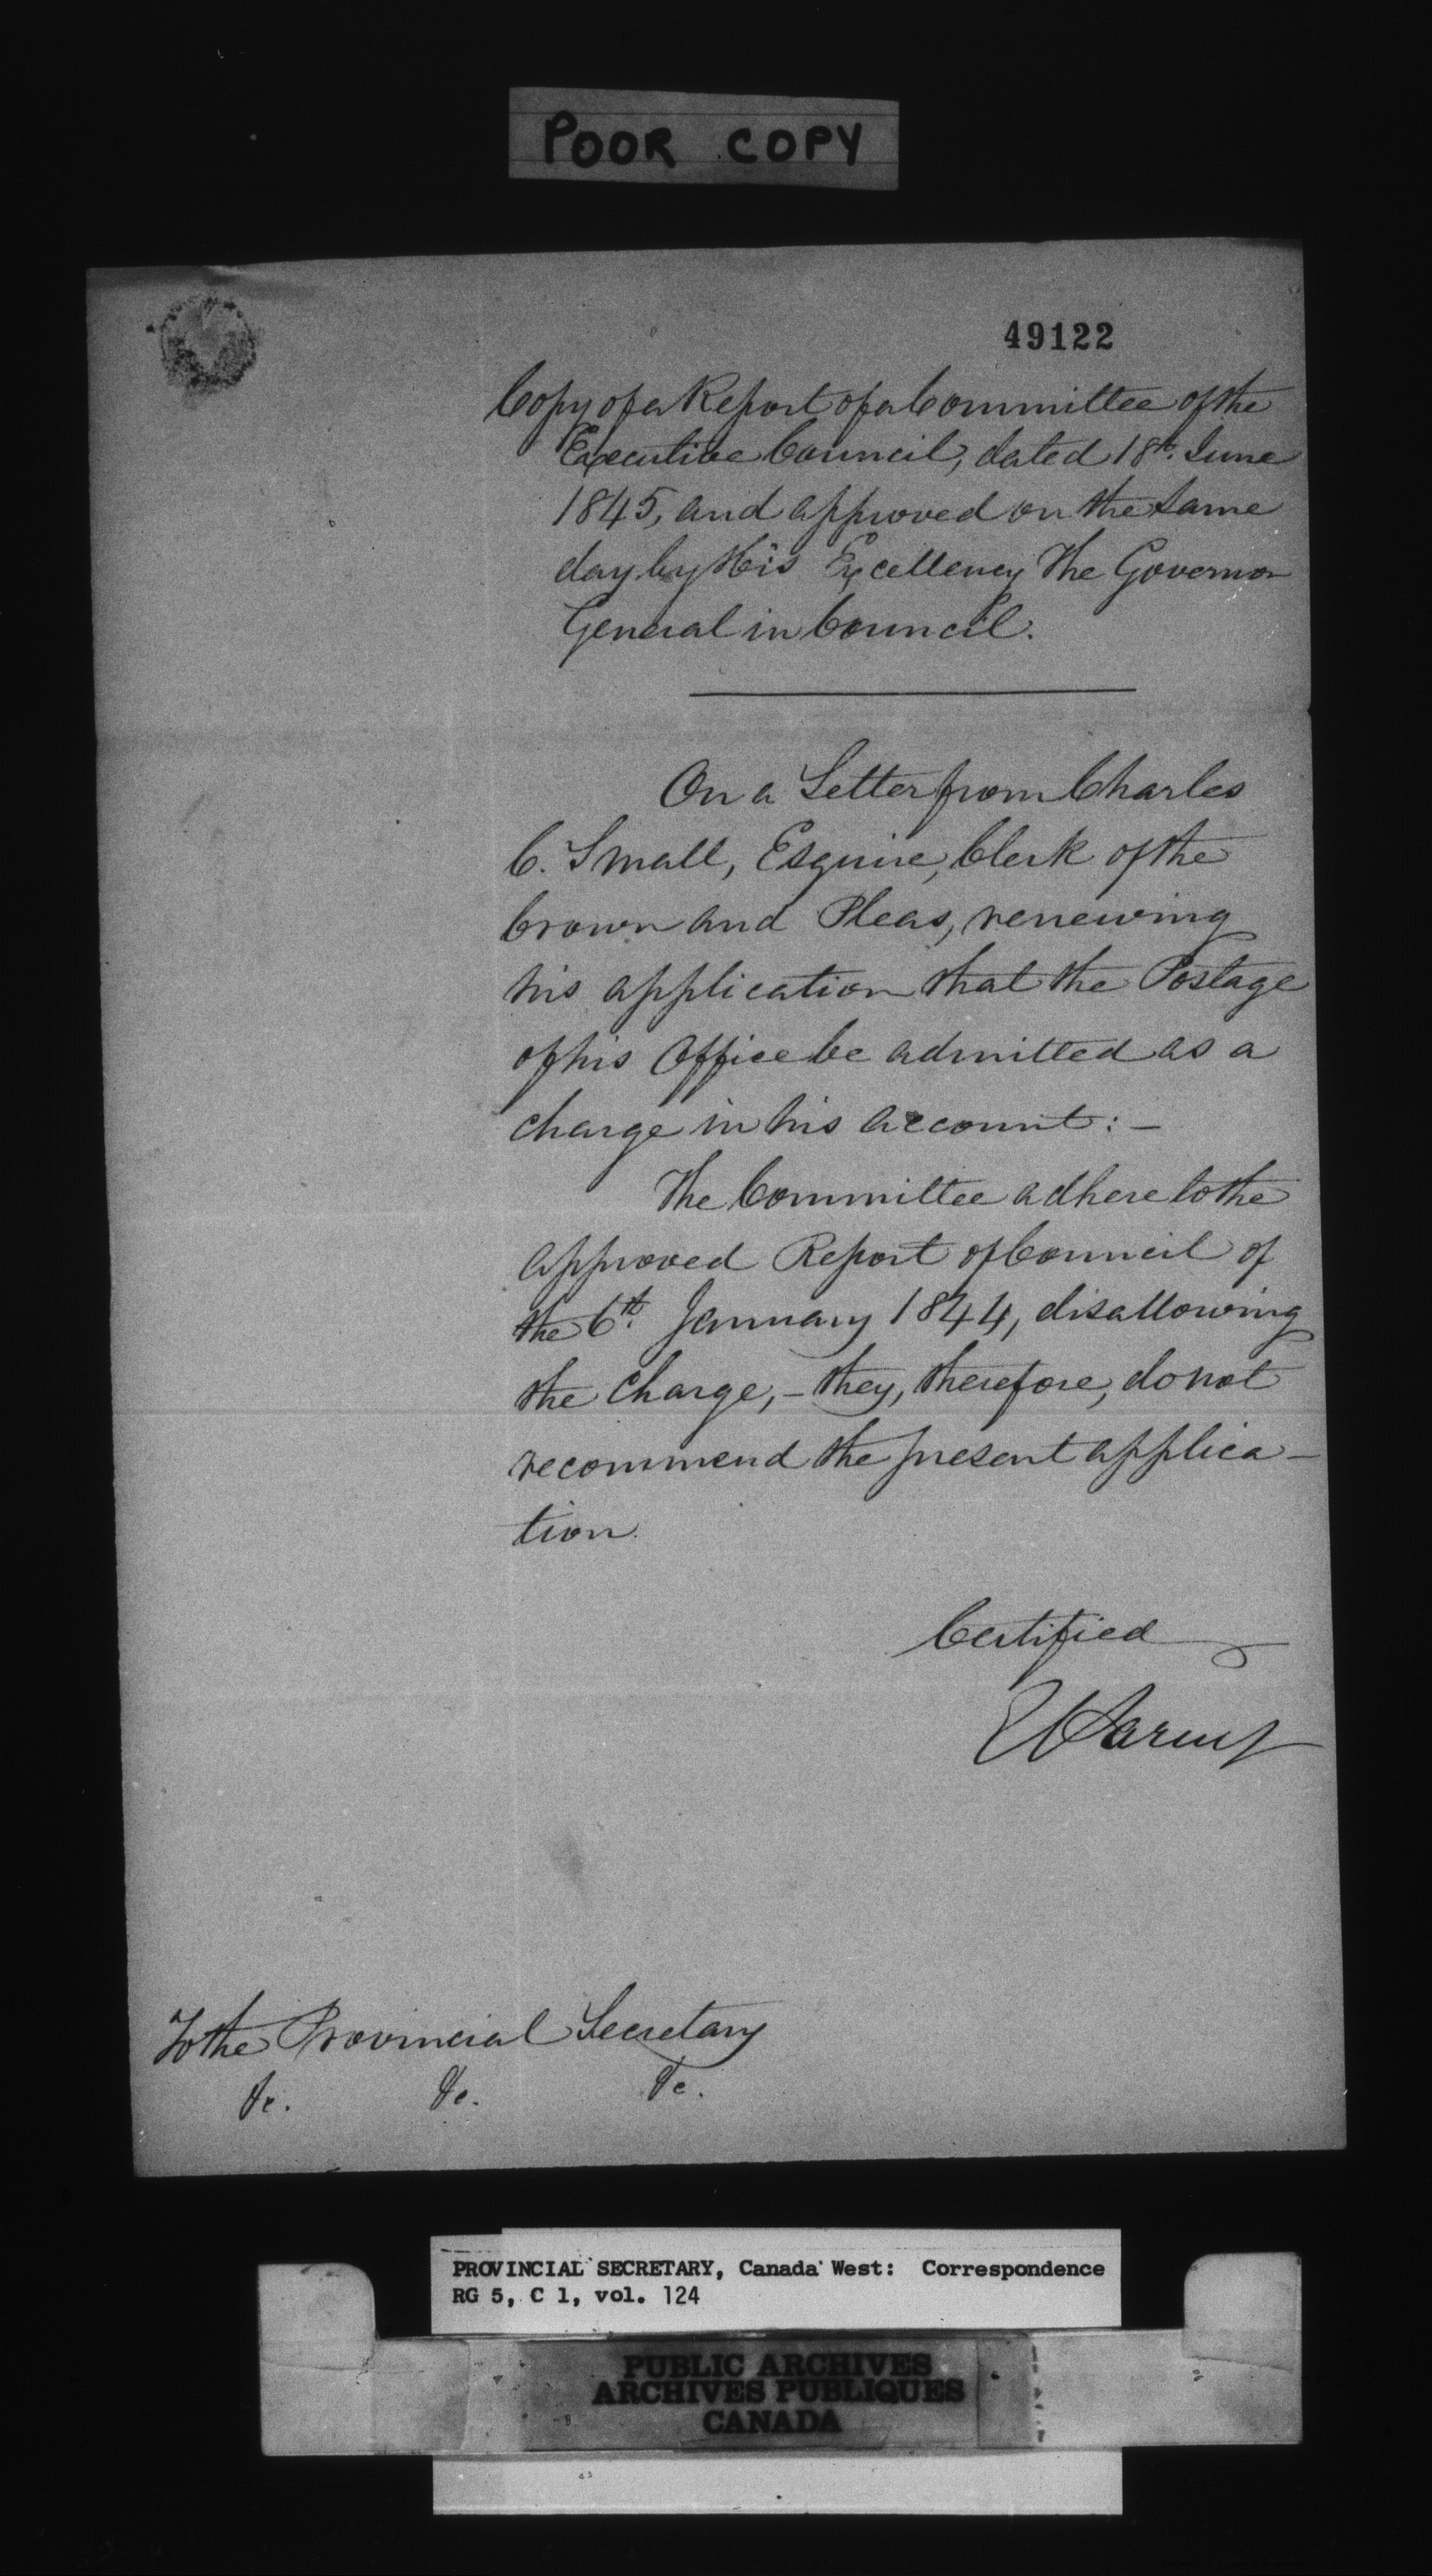 POOR COPY
49122
Copy of a Report of a Committee of the
Executive Council, dated 18th. June
1845, and approved on the same
day by His Excellency The Governor
General in Council.
On a Letter from Charles
C. Small, Esquire, Clerk of the
Crown and Pleas, renewing
his application that the Postage
of his Office be admitted as a
charge in his account: –
The Committee adhere to the
approved Report of Council of
the 6th. January 1844, disallowing
the charge, – they, therefore, do not
recommend the present applica–
tion.
Certified
E Parent
To the Provincial Secretary
&c. &c. &c.
PROVINCIAL SECRETARY, Canada West: Correspondence
RG 5, C 1, vol. 124
PUBLIC ARCHIVES
ARCHIVES PUBLIQUES
CANADA